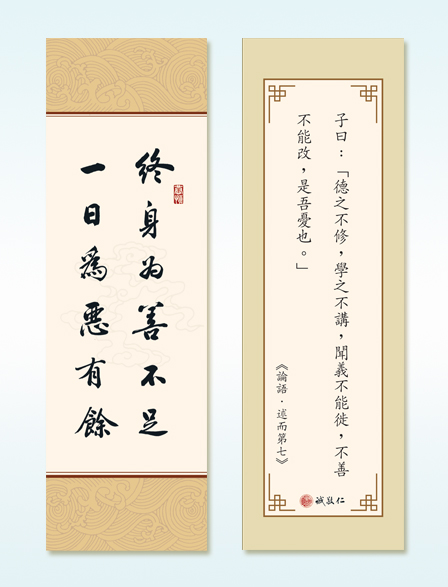 終身为善不足
一日為惡有餘
子曰：「德之不修，學之不講，聞義不能徙，不善
不能改，是吾憂也。」
《論語．述而第七》
誠敬仁